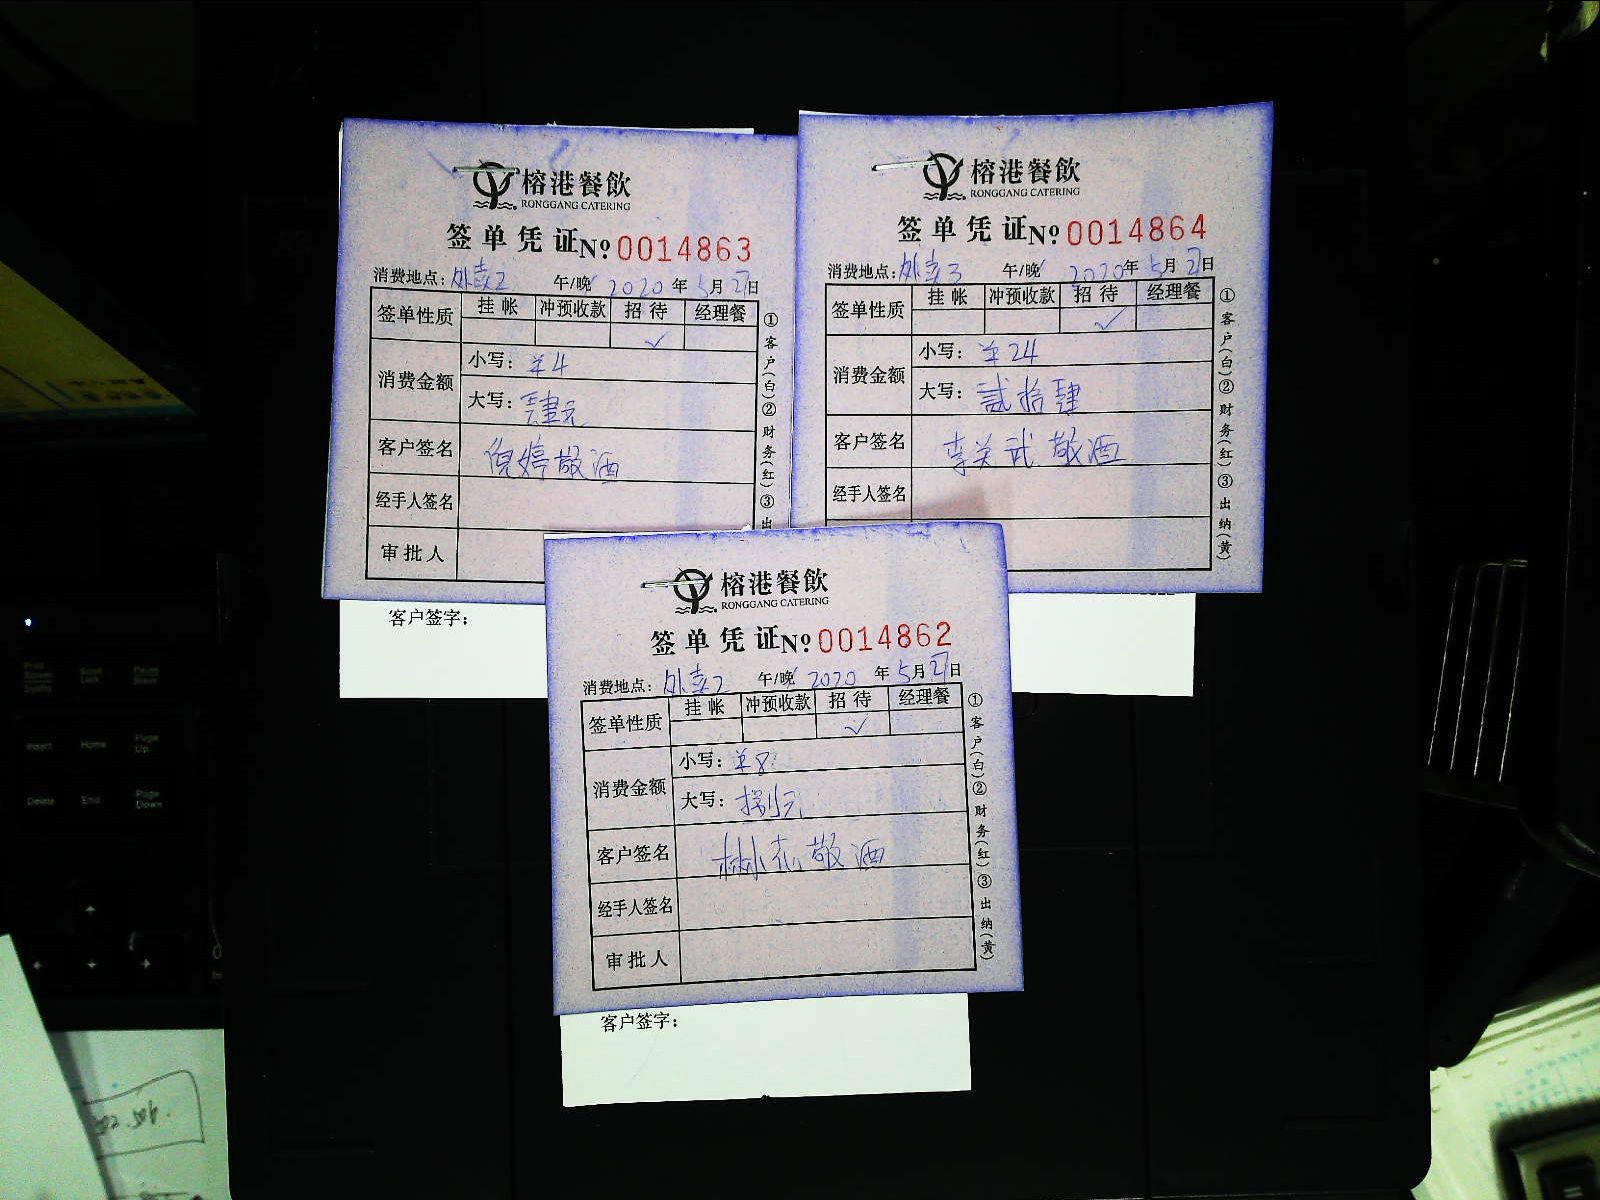 榕港餐飲
RONGGANG CATERING
签单凭证№0014863
消费地点：外卖2 午/晚 2020年5月27日
签单性质 挂帐 冲预收款 招待 经理餐
✓
消费金额 小写：¥4
大写：肆元
客户签名 倪婷敬酒
经手人签名
审批人
①客户(白)②财务(红)③出
客户签字：
榕港餐飲
RONGGANG CATERING
签单凭证№0014864
消费地点：外卖3 午/晚 2020年5月27日
签单性质 挂帐 冲预收款 招待 经理餐
✓
消费金额 小写：¥24
大写：贰拾肆
客户签名 李关武敬酒
经手人签名
①客户(白)②财务(红)③出纳(黄)
榕港餐飲
RONGGANG CATERING
签单凭证№0014862
消费地点：外卖2 午/晚 2020年5月27日
签单性质 挂帐 冲预收款 招待 经理餐
✓
消费金额 小写：¥8
大写：捌元
客户签名 林志敬酒
经手人签名
审批人
①客户(白)②财务(红)③出纳(黄)
客户签字：
Insert Home Page Up
Delete End Page Down